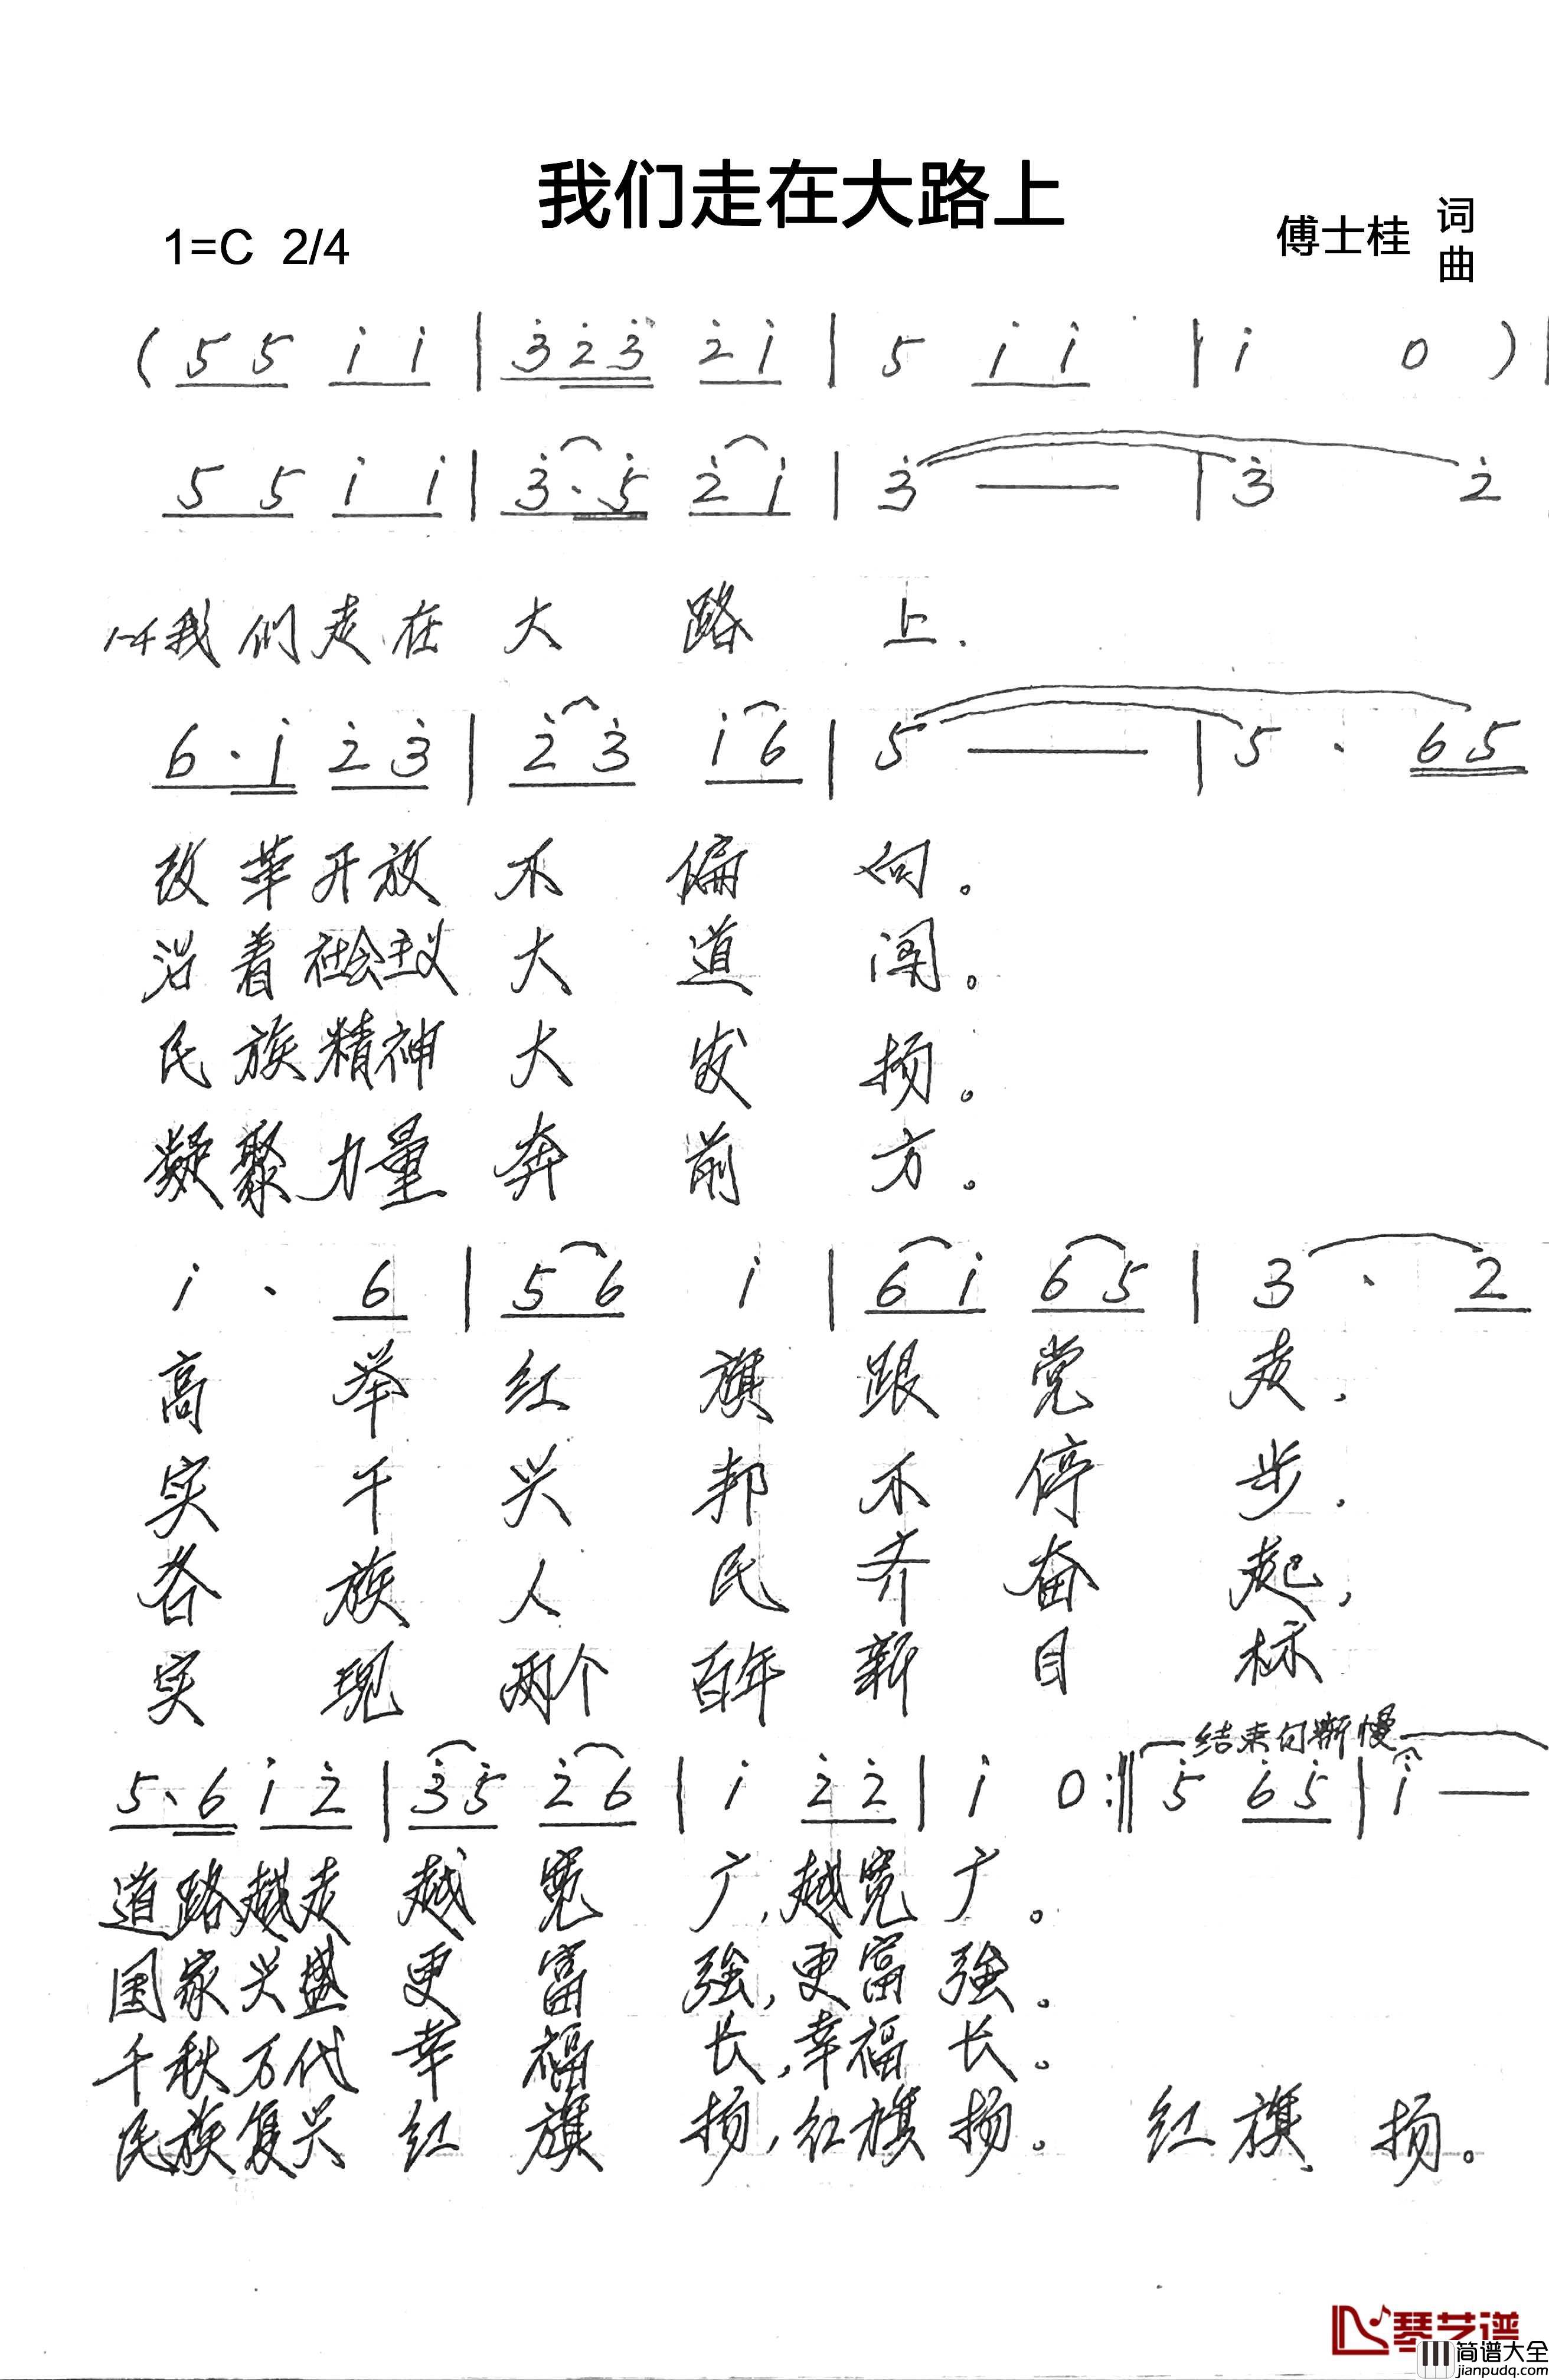 我们走在大路上
1=C 2/4
傅士桂 词
曲
( 5 5 i i | 3 2 3 2 i | 5 i i | i 0 ) |
5 5 i i | 3 · 5 2 i | 3 — | 3 2 |
1-4我们走在大路上,
6 · i 2 3 | 2 3 i 6 | 5 — | 5 · 6 5
改革开放不偏向。
沿着社会主义大道闯。
民族精神大发扬。
凝聚力量奔前方。
i · 6 | 5 6 i | 6 i 6 5 | 3 · 2
高举红旗跟党走,
实干兴邦不停步,
各族人民齐奋起,
实现两个百年新目标
结束句渐慢
5 · 6 i 2 | 3 5 2 6 | i 2 2 | i 0 :‖ 5 6 5 | i —
道路越走越宽广,越宽广。
国家兴盛更富强,更富强。
千秋万代幸福长,幸福长。
民族复兴红旗扬,红旗扬。 红旗扬。
琴艺谱
简谱大全
jianpudq.com